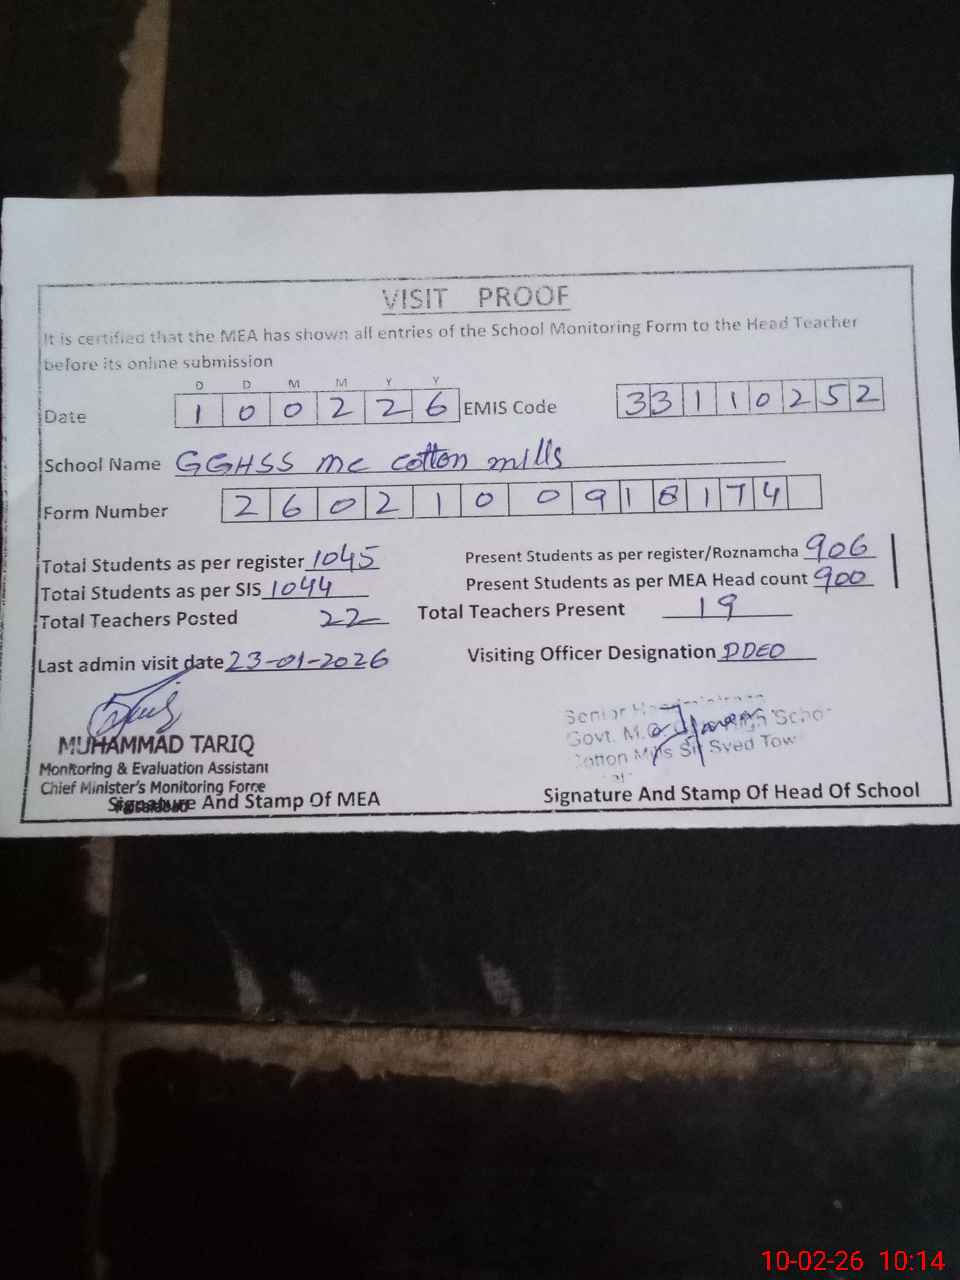 VISIT PROOF
It is certified that the MEA has shown all entries of the School Monitoring Form to the Head Teacher
before its online submission
D D M M Y Y
Date 1 0 0 2 2 6 EMIS Code 3 3 1 1 0 2 5 2
School Name GGHSS mc cotton mills
Form Number 2 6 0 2 1 0 0 9 1 8 1 7 4
Total Students as per register 1045 Present Students as per register/Roznamcha 906
Total Students as per SIS 1044 Present Students as per MEA Head count 900
Total Teachers Posted 22 Total Teachers Present 19
Last admin visit date 23-01-2026 Visiting Officer Designation DDEO
MUHAMMAD TARIQ
Monitoring & Evaluation Assistant
Chief Minister's Monitoring Force
Signature And Stamp Of MEA
Senior
Govt. M.C
Cotton Mills Sir Syed Tow
Signature And Stamp Of Head Of School
10-02-26 10:14